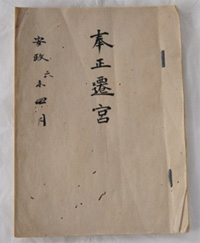 奉正遷宮
安政六未四月